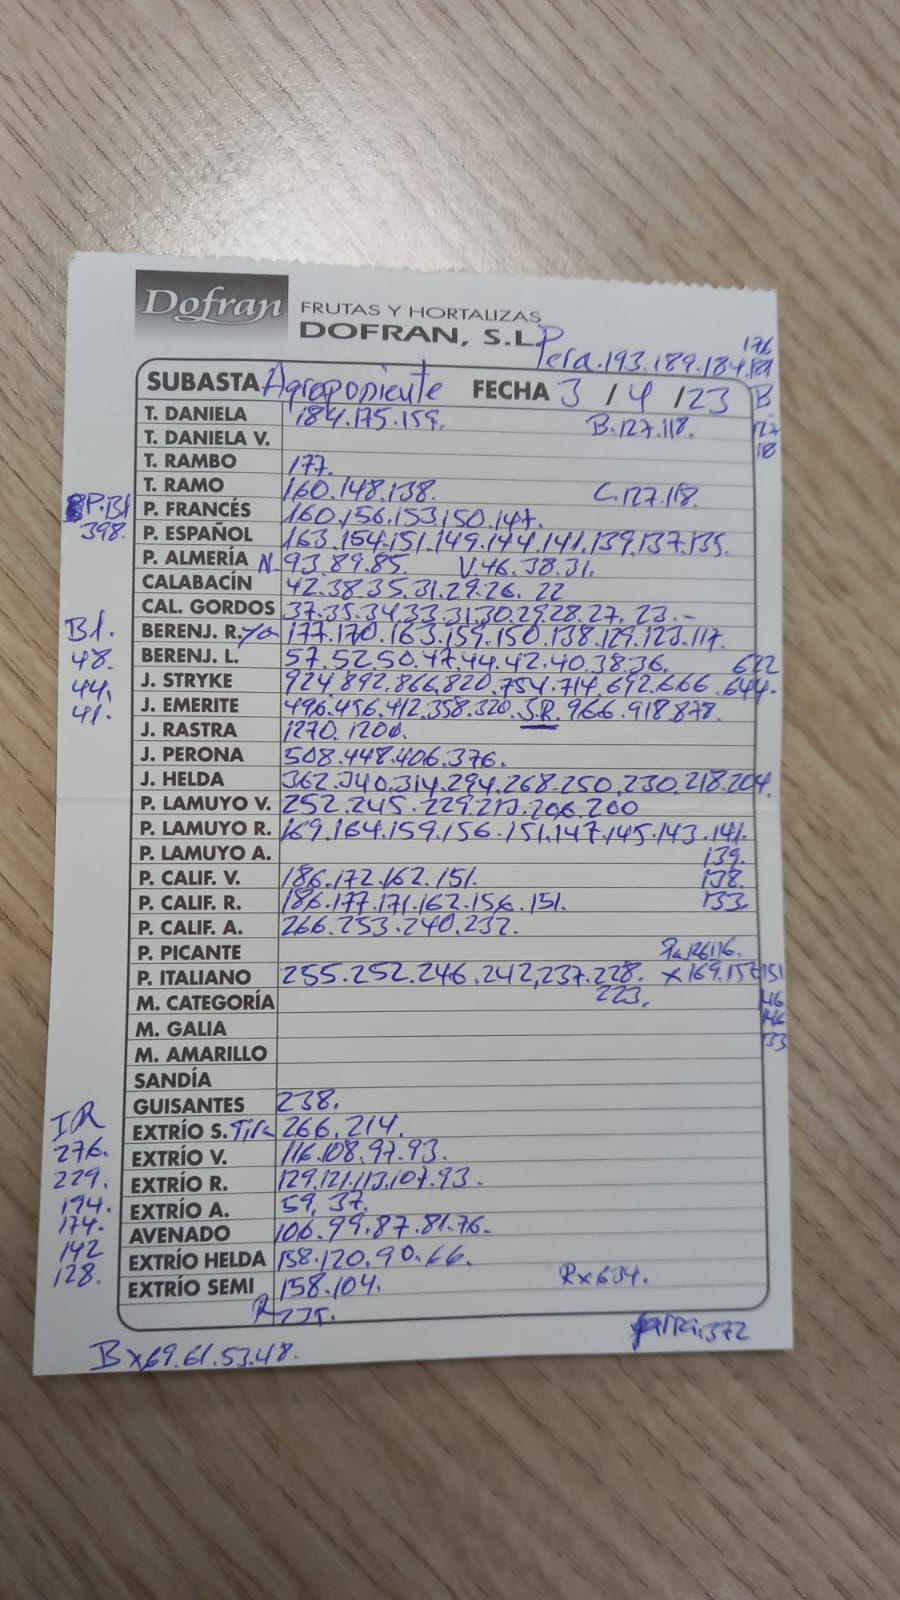 Dofran FRUTAS Y HORTALIZAS
DOFRAN, S.L.
Pera.193.189.184.
176
SUBASTA Agroponiente FECHA 3 / 4 / 23 B
T. DANIELA 184.175.159. B.127.118. 127
118
T. DANIELA V.
T. RAMBO 177.
T. RAMO 160.148.138. C.127.118.
P.Bl
398.
P. FRANCÉS 160.156.153.150.147.
P. ESPAÑOL 163.154.151.149.144.141.139.137.135.
P. ALMERÍA N.93.89.85. V.46.38.31.
CALABACÍN 42.38.35.31.29.26.22
CAL. GORDOS 37.35.34.33.31.30.29.28.27.23.-
Bl.
48.
44.
41.
BERENJ. R. 177.170.163.159.150.138.129.123.117.
BERENJ. L. 57.52.50.47.44.42.40.38.36. 622
J. STRYKE 924.892.866.820.754.714.692.666.644.
J. EMERITE 496.456.412.358.320.S.R.966.918.878.
J. RASTRA 1270.1200.
J. PERONA 508.448.406.376.
J. HELDA 362.340.314.294.268.250.230.218.204.
P. LAMUYO V. 252.245.229.213.206.200
P. LAMUYO R. 169.164.159.156.151.147.145.143.141.
P. LAMUYO A. 139.
P. CALIF. V. 186.172.162.151. 138.
P. CALIF. R. 186.177.171.162.156.151. 133
P. CALIF. A. 266.253.240.232.
P. PICANTE
P. ITALIANO 255.252.246.242,237.228. x169.157.151
M. CATEGORÍA 223. 146
M. GALIA 146
M. AMARILLO 133
SANDÍA
GUISANTES 238.
IR
276.
229.
194.
174.
142
128.
EXTRÍO S. Tira 266.214.
EXTRÍO V. 116.108.97.93.
EXTRÍO R. 129.121.113.107.93.
EXTRÍO A. 59,37.
AVENADO 106.99.87.81.76.
EXTRÍO HELDA 158.120.90.66.
EXTRÍO SEMI 158.104. Rx634.
R 235.
372
Bx69.61.53.48.